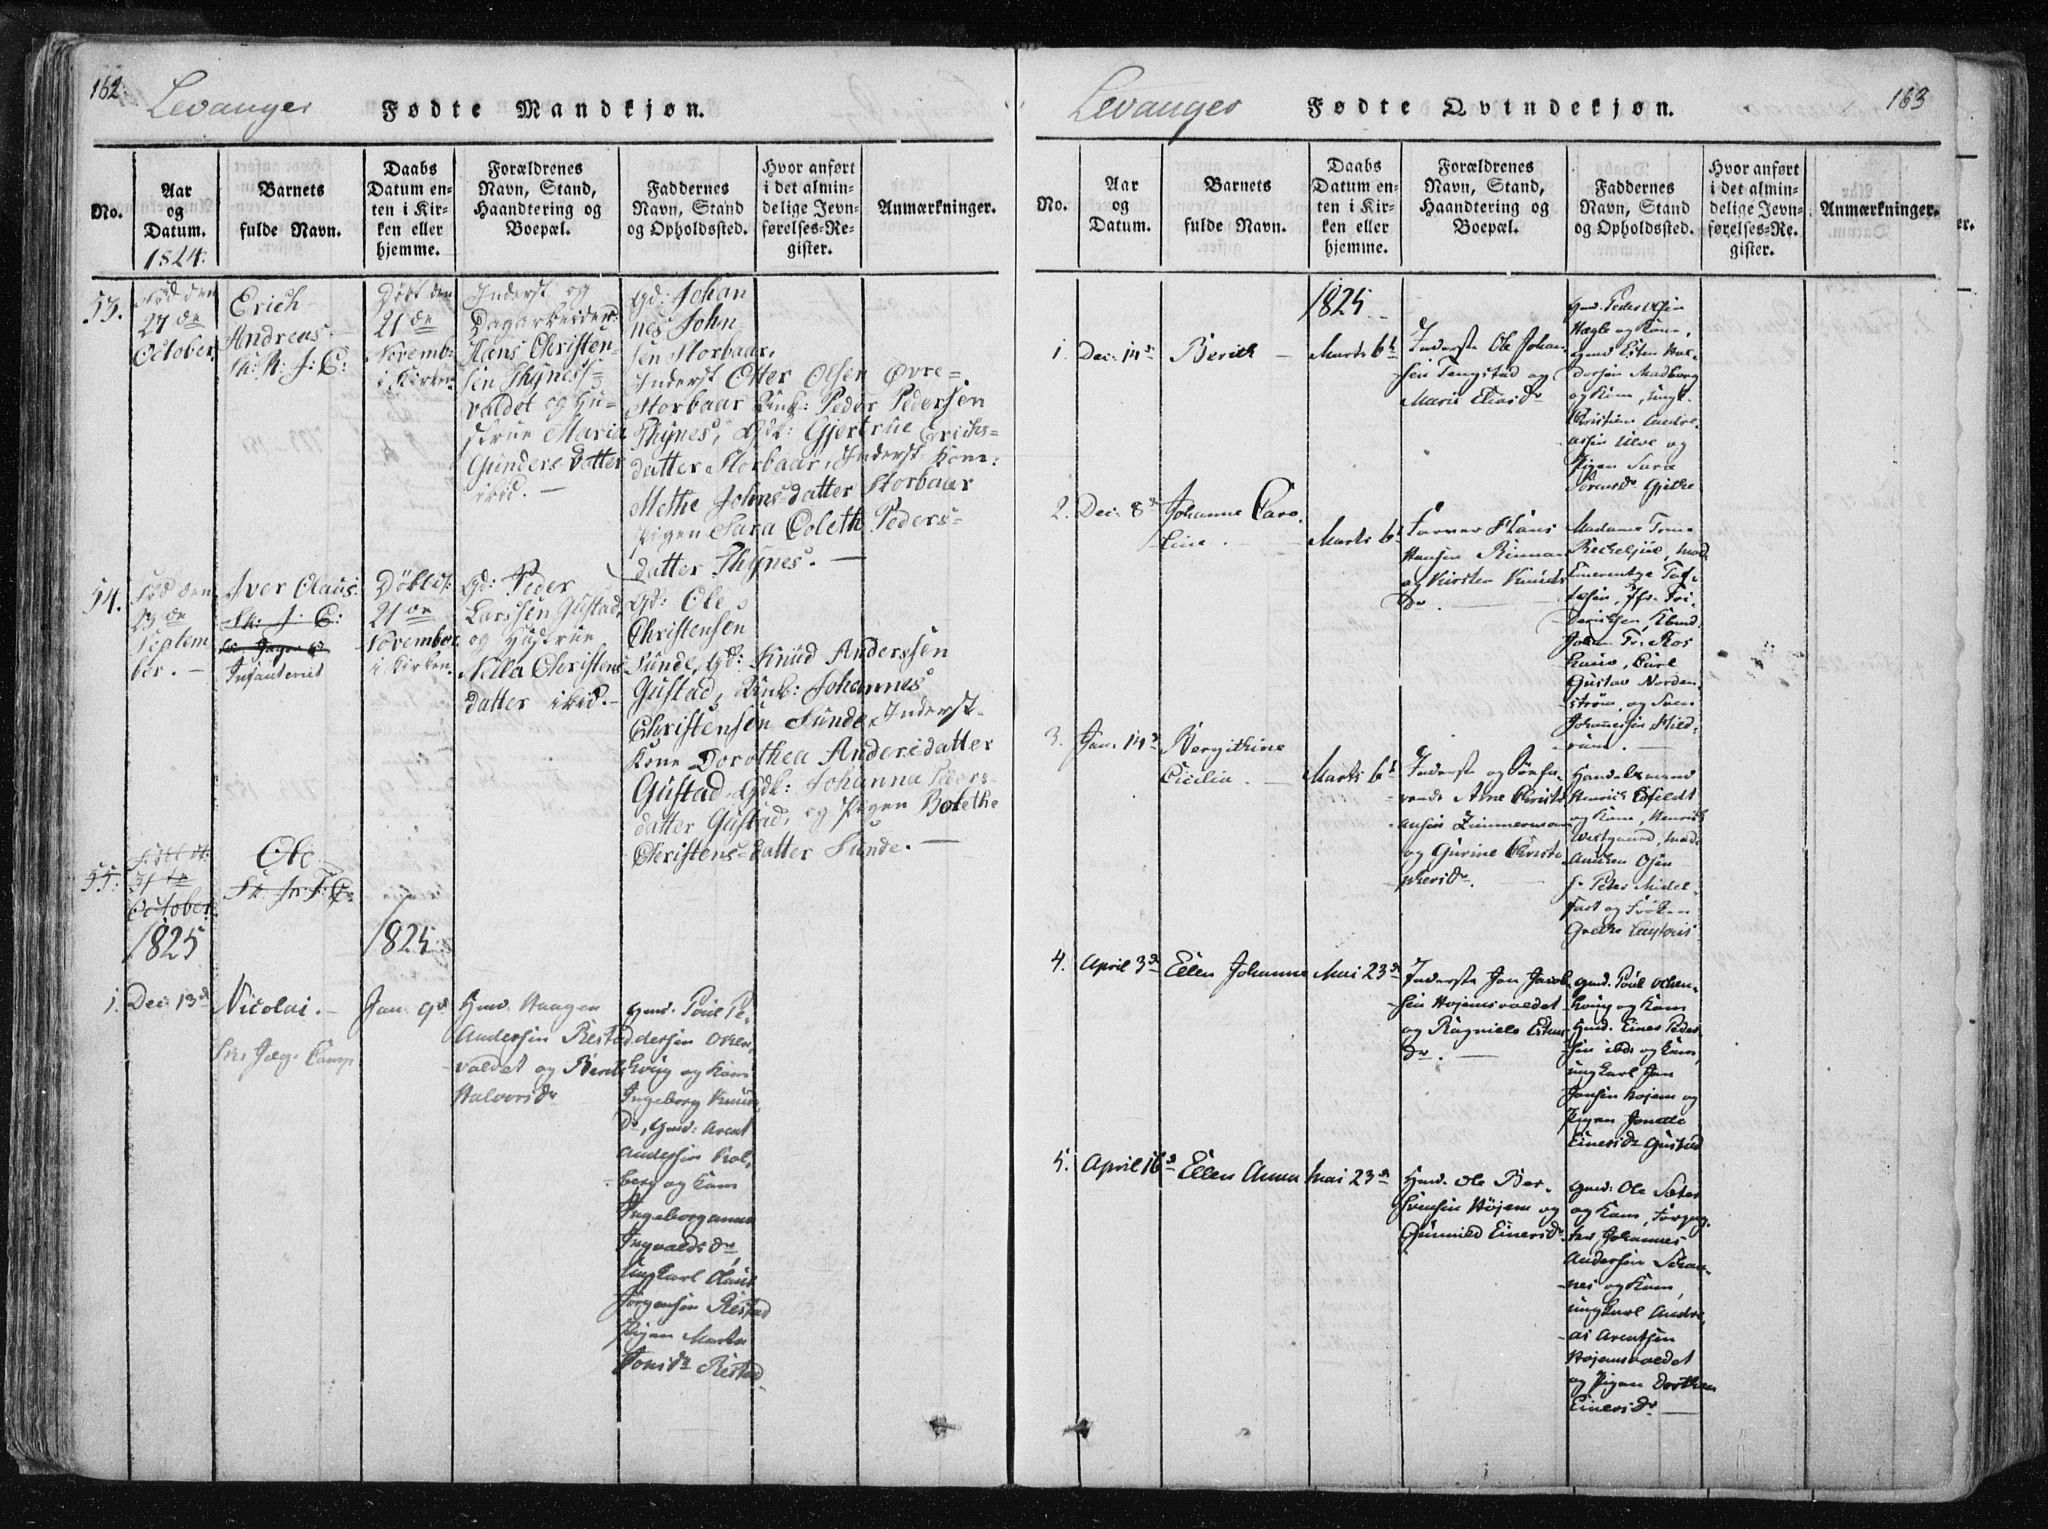 162.
Levanger
Fødte Mandkjøn.
No.
Aar
og
Datum.
1824.
Barnets
fulde Navn.
Daabs
Datum en-
ten i Kir-
ken eller
hjemme.
Forældrenes
Navn, Stand,
Haandtering og
Boepæl.
Faddernes
Navn, Stand
og Opholdssted.
Hvor anført
i det almin-
delige Jevn-
førelses-Re-
gister.
Anmærkninger.
53.
Fød den
27 de
October
Erich
Andreas.
Døbt den
21 de
Novemb:
i Kirken
Inderst og
Dagarbeider
Hans Christen-
sen Thynes-
valdet og Hu-
strue Maria
Gunders datter
ibid. —
Gd: Johan
nes John-
sen Storbaar,
Inderst Otter Olsen Øvre-
Storbaar Unk: Peder Pedersen
Thynes, Gdk: Gjertrue Erichs-
datter Storbaar, Inderst Kone:
Methe Johns-datter Storbaar
Pigen Sara Coleth Peders-
datter Thynes. —
54.
Fød den
29 de
Septem
ber. —
Iver Olaus
Infanteriet
Døbt d:
21 de
November
i Kirken.
Gd: Peder
Larssen Gustad,
og Hustrue
Nella Christens
datter ibid. —
Gd: Ole
Christensen
Sunde, Gd: Knud Anderssen
Gustad, Unk: Johannes
Christensen Sunde, Inderst-
Kone Dorothea Andersdatter
Gustad, Gdk: Johanna Peders-
datter Gustad, og Pigen Bolethe
Christens-datter Sunde. —
55.
Fød d:
31 te
October
Ole
1825
1825
1.
Dec: 13 d
Nicolai. —
Jan. 9 d
Gmd. Haagen
Andersen Restad
valdet og Berit
Halvorsdr
Gmd. Poul Pe-
dersen Oken-
houg og Kone
Ingeborg Knuds
dr, Gmd: Arent
Andersen Hol-
berg og Kone
Ingeborganna
Ingvaldsdr,
Ungkarl Olaus
Jørgensen Restad
Pigen Martha
Tomsdr Restad.
163
Levanger
Fødte Qvindekjøn.
No.
Aar
og
Datum.
Barnets
fulde Navn.
Daabs
Datum en-
ten i Kir-
ken eller
hjemme.
Forældrenes
Navn, Stand,
Haandtering og
Boepæl.
Faddernes
Navn, Stand
og Opholdssted.
Hvor anført
i det almin-
delige Jevn-
førelses-Re-
gister.
Anmærkninger.
1825.
1.
Dec: 14 d
Berith —
Marts 6 t
Inderste Ole Johan-
sen Tengstad og
Marie Eliasdr
Gmd. Peder Olsen
Hægle og Kone,
Gmd Esten Hal-
dorsen Madberg
og Kone, Ungk.
Christian Andre-
assen Ulve og
Pigen Sara
Sørensdr
2.
Dec: 8 d
Johanne Caro-
line. —
Marts 6 t
Farver Hans
Hansen Rinnan
og Kirsten Knuds
dr. —
Madame
Carl
Gustav Norden-
strøm, og Sven
Johannesen
3.
Jan. 14 d
Bergithine
Cicilia. —
Marts 6 t
Inderste og
Arne Christi-
ansen Zimmermann
og Gurine Christo
phersdr. —
Handelsmand
Henrich
og Kone, Henrich
Peter Midel-
fart og Frøken
Grethe
4.
April 3 d
Ellen Johanne
Mai 23 d
Inderste Jon Jacob-
sen Høiemsvaldet
og Ragnild Estens
dr. —
Gmd. Poul Oken-
houg og Kone
Gmd. Einer Peder-
sen ibd. og Kone,
Ungkarl Jon
Jonsen Højem og
Pigen Jonetta
Einersdr Gustad
5.
April 16 d
Ellen Anna
Mai 23 d
Gmd. Ole Ber-
Højem og
Gunnild Einersdr
Gmd: Ole Sæter
og Kone,
Johannes
Andersen
og Kone,
Ungkarl Andre-
as Arentsen
Højemsvaldet
og Pigen Dorthea
Einersdr —